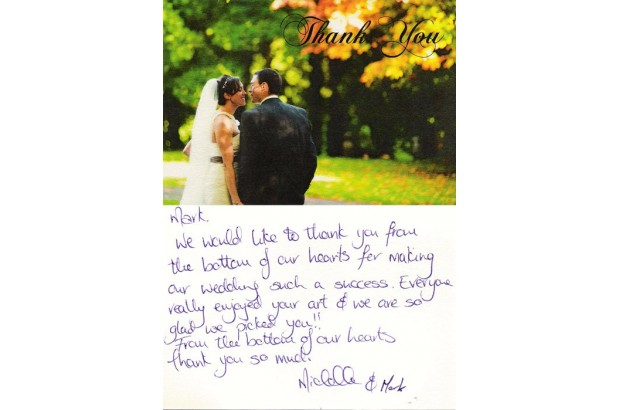 Thank You
Mark.
We would like to thank you from
the bottom of our hearts for making
our wedding such a success. Everyone
really enjoyed your art & we are so
glad we picked you!!
From the bottom of our hearts
thank you so much.
Michelle & Mark